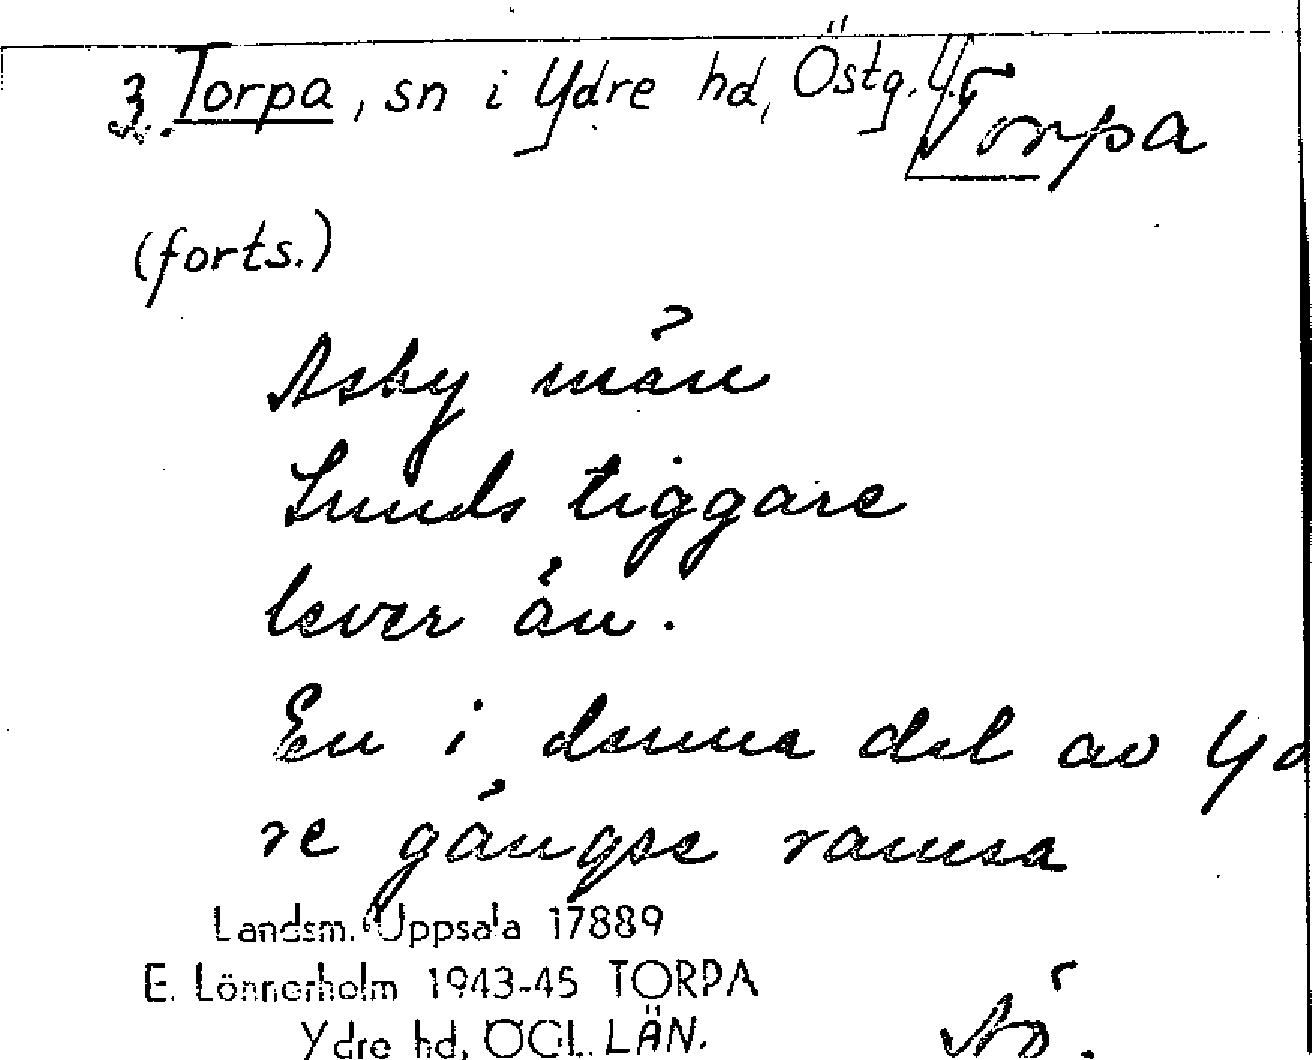 3. Torpa, sn i Ydre hd, Östg.
Torpa
(forts.)
Asby män
Sunds tiggare
lever än.
En i denna del av Yd
re gängse ramsa
Landsm. Uppsala 17889
E. Lönnerholm 1943-45 TORPA
Ydre hd, ÖGL. LÄN.